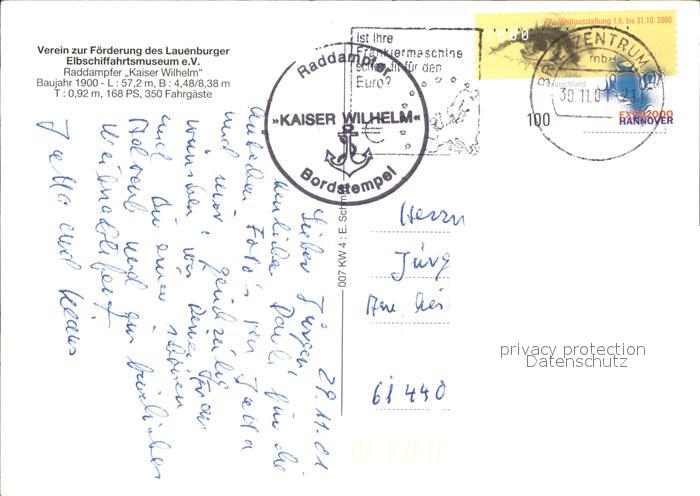 Verein zur Förderung des Lauenburger
Elbschiffahrtsmuseum e.V.
Raddampfer „Kaiser Wilhelm"
Baujahr 1900 - L : 57,2 m, B : 4,48/8,38 m
T : 0,92 m, 168 PS, 350 Fahrgäste
Raddampfer
»KAISER WILHELM«
Bordstempel
Ist Ihre
Frankiermaschine
schon fit für den
Euro?
Weltausstellung 1.6. bis 31.10.2000
BRIEFZENTRUM
30.11.01-21
100
EXPO2000
HANNOVER
007 KW 4 : E. Schm
29.11.01
Lieber Jürgen!
herzlichen Dank für die
Fotos von Jutta
und mir! Gleichzeitig
wünschen wir Deiner Frau
und Dir einen schönen
Advent und ein
Weihnachtsfest
Jutta und Klaus
Herrn
Jürg
61440
privacy protection
Datenschutz